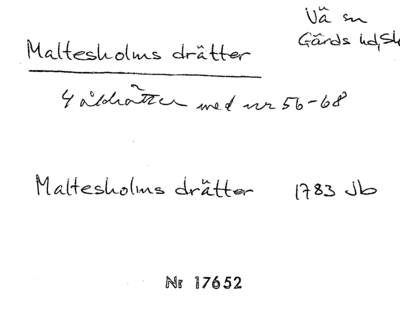 Vä sn
Gärds hd, Sk
Maltesholms drätter
4 åldrätter med nr 56-68
Maltesholms drätter 1783 Jb
Nr 17652